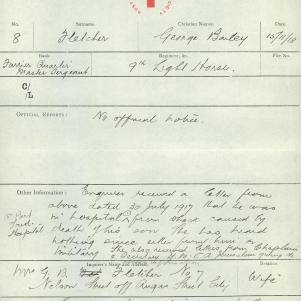 No. Surname. Christian Names. Date.
8 Fletcher George Bailey 15/11/18
Rank. Regiment, &c. File No.
Farrier Quarter
Master Sergeant 9th Light Horse.
C/
/L
OFFICIAL REPORTS: No official notice.
Other Information: Enquirer received a letter from
above dated 30 July 1917 that he was
in hospital from shock caused by
death of his son. She has heard
nothing since either from him or
Military. She also received letter from Chaplain
& Secretary Y.M.C.A. Jerusalem
Port
Hospital
Enquirer's Name and Address. Relation.
Mrs G. B. Fletcher No 7 Wife
Nelson Street off Angas Street City